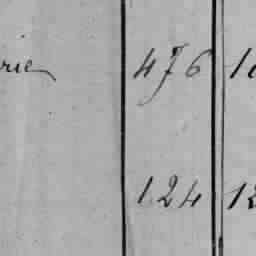 rie 476 10
124 12